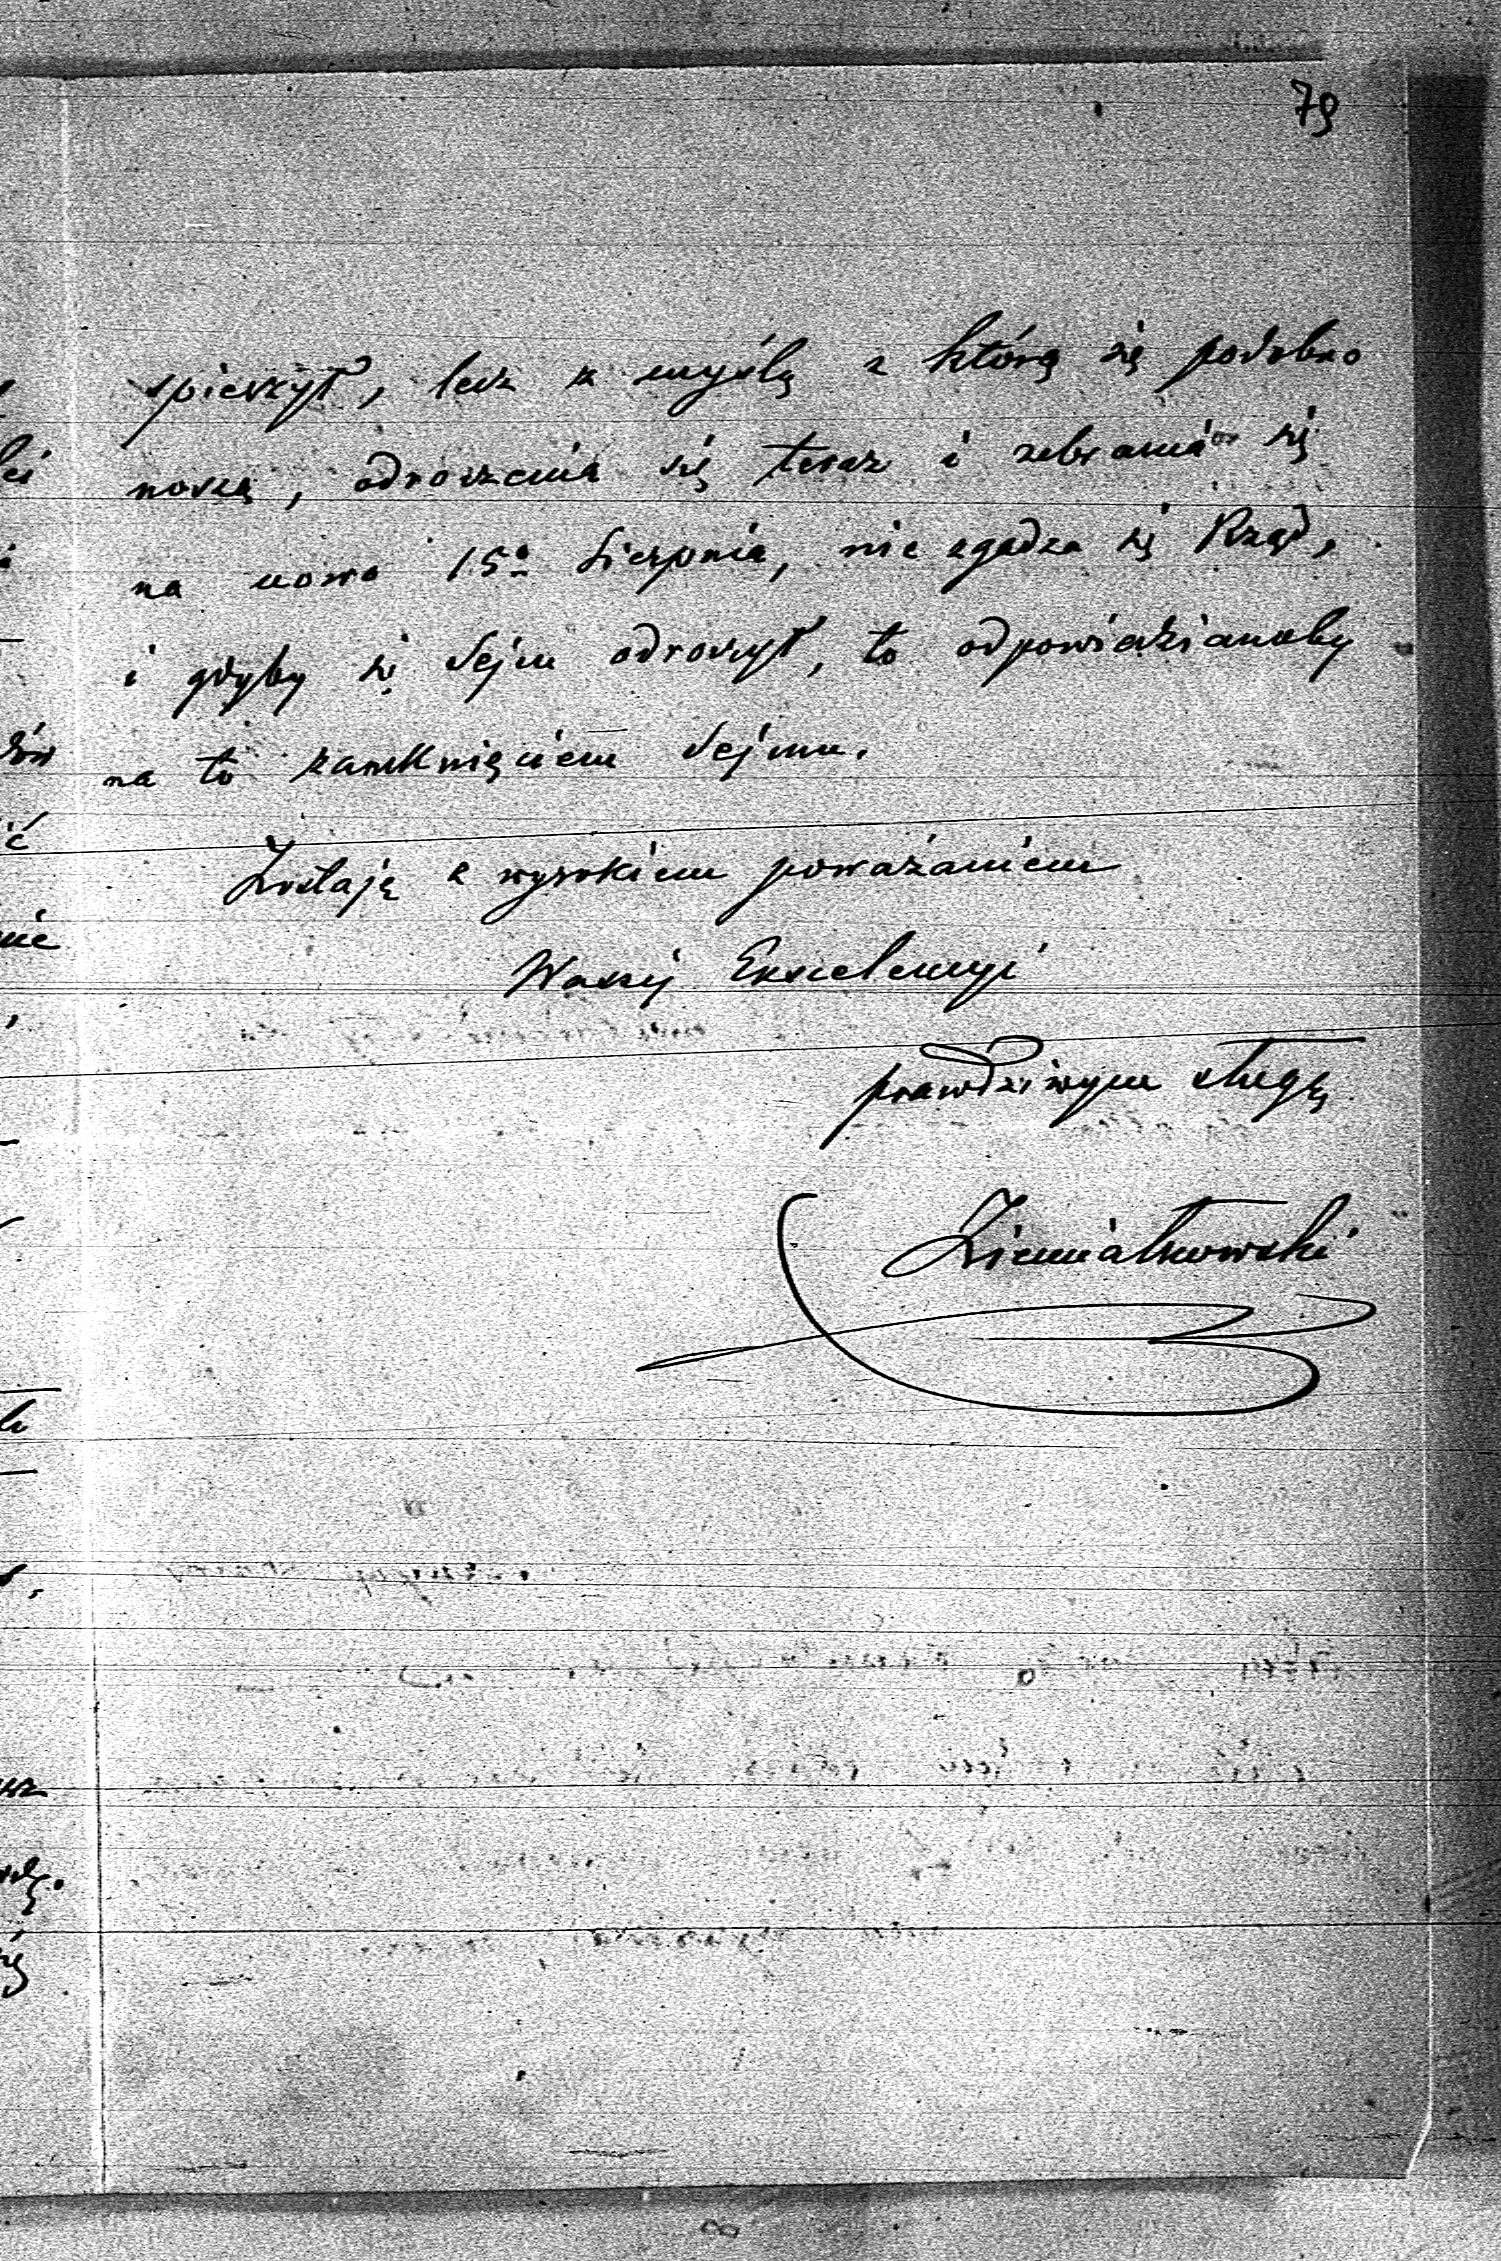 79
spieszył, lecz z myślą z którą się podobno
noszą, odroczenia się teraz i zebrania się
na nowo 15º Sierpnia, nie zgadza się Rząd,
i gdyby się Sejm odroczył, to odpowiedzianoby
na to zamknięciem Sejmu.
Zostaję z wysokiem poważaniem
Waszej Excelencyi
prawdziwym sługą
Ziemiałkowski